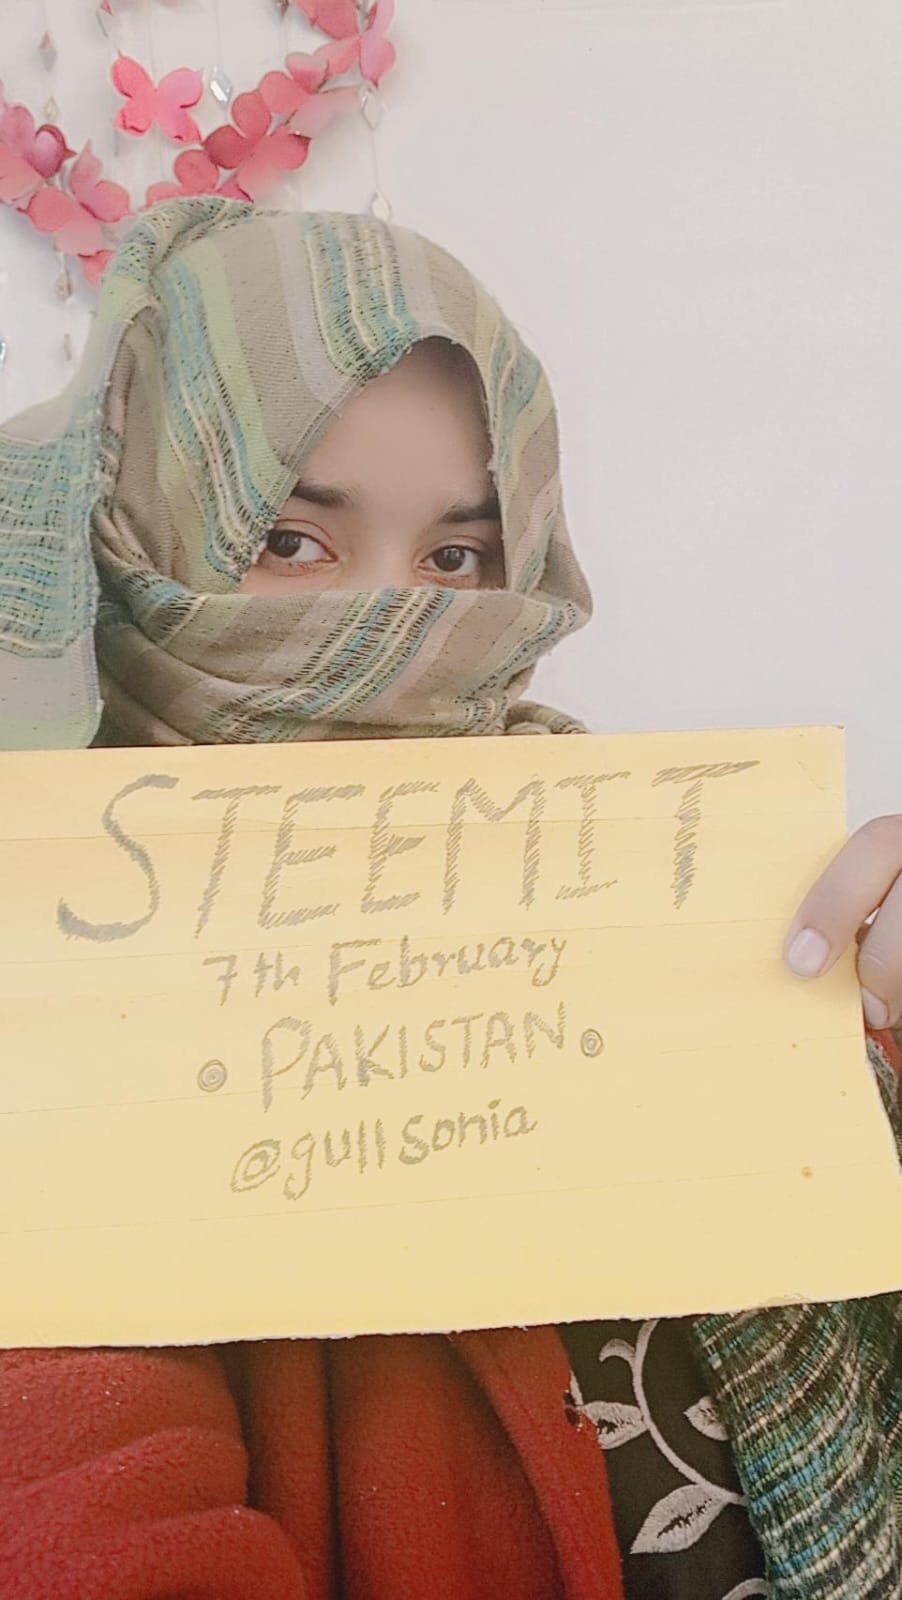 STEEMIT
7th February
PAKISTAN
@gullsonia